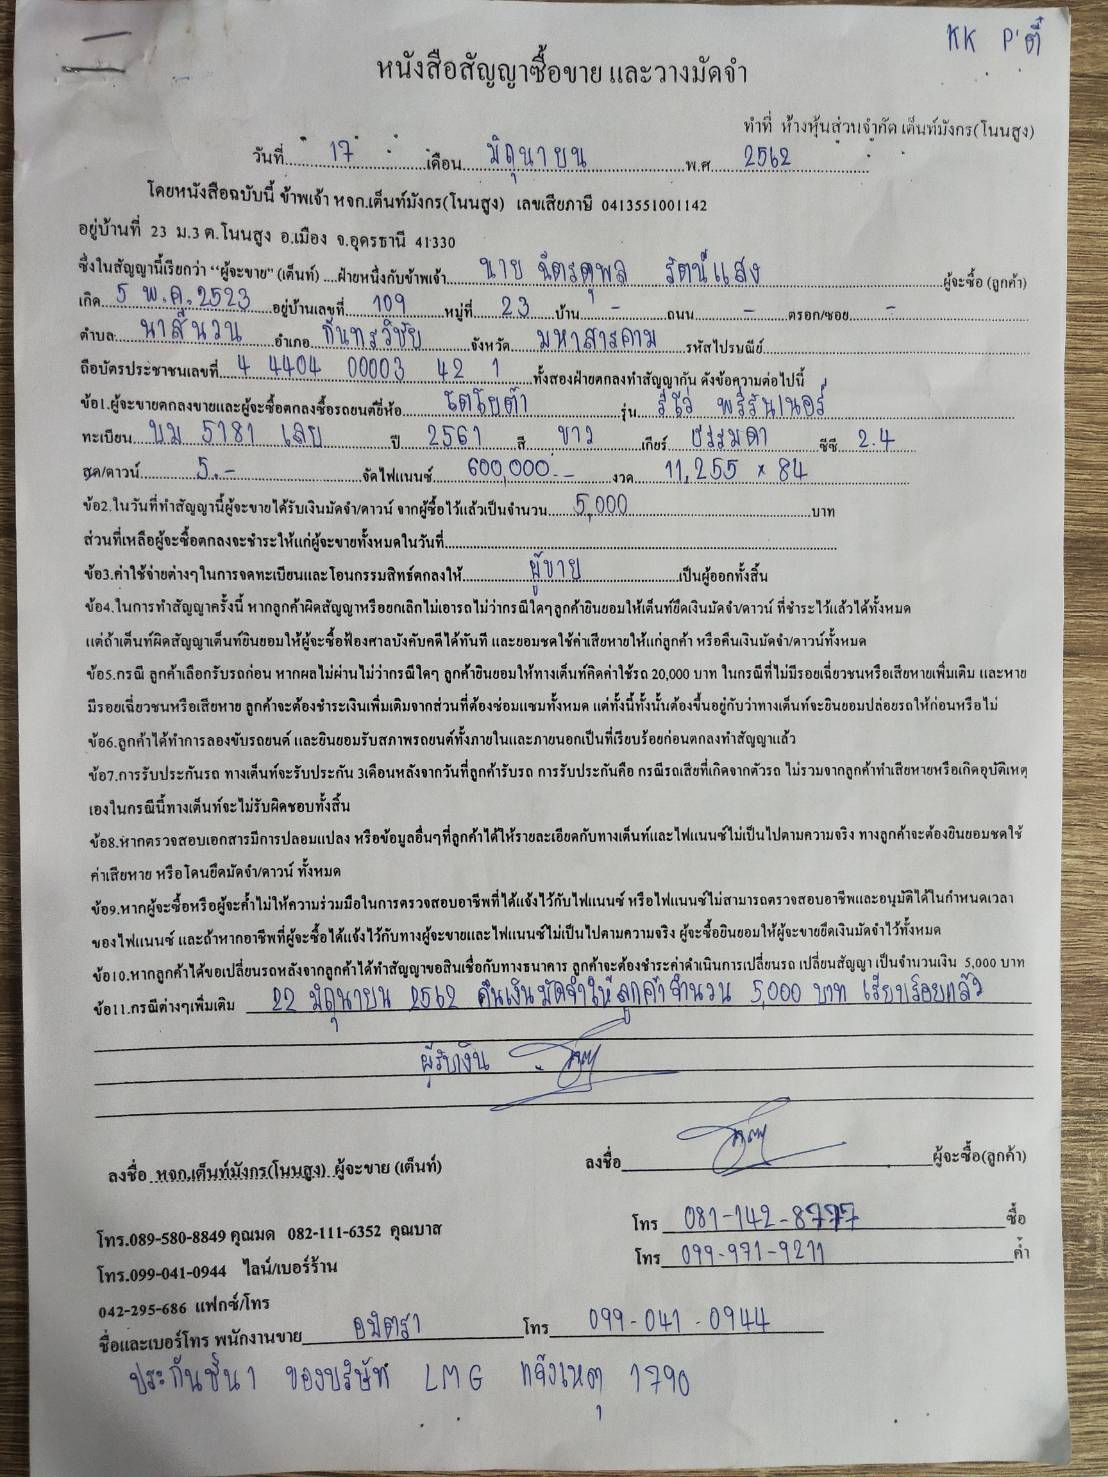 KK P'ตี๋
หนังสือสัญญาซื้อขาย และวางมัดจำ
ทำที่ ห้างหุ้นส่วนจำกัด เต็นท์มังกร(โนนสูง)
วันที่ 17 เดือน มิถุนายน พ.ศ 2562
โดยหนังสือฉบับนี้ ข้าพเจ้า หจก.เต็นท์มังกร(โนนสูง) เลขเสียภาษี 0413551001142
อยู่บ้านที่ 23 ม.3 ต.โนนสูง อ.เมือง จ.อุดรธานี 41330
ซึ่งในสัญญานี้เรียกว่า "ผู้จะขาย" (เต็นท์) ....ฝ่ายหนึ่งกับข้าพเจ้า นาย ฉัตรดุพล รัตน์แสง ผู้จะซื้อ (ลูกค้า)
เกิด 5 พ.ค.2523 อยู่บ้านเลขที่ 109 หมู่ที่ 23 บ้าน - ถนน - ตรอก/ซอย -
ตำบล นาสีนวน อำเภอ กันทรวิชัย จังหวัด มหาสารคาม รหัสไปรษณีย์
ถือบัตรประชาชนเลขที่ 4 4404 00003 42 1 ทั้งสองฝ่ายตกลงทำสัญญากัน ดังข้อความต่อไปนี้
ข้อ1.ผู้จะขายตกลงขายและผู้จะซื้อตกลงซื้อรถยนต์ยี่ห้อ โตโยต้า รุ่น รีโว่ พรีรันเนอร์
ทะเบียน บม 5181 เลย ปี 2561 สี ขาว เกียร์ ธรรมดา ซีซี 2.4
สด/ดาวน์ 5.- จัดไฟแนนซ์ 600,000.- งวด 11,255 x 84
ข้อ2.ในวันที่ทำสัญญานี้ผู้จะขายได้รับเงินมัดจำ/ดาวน์ จากผู้ซื้อไว้แล้วเป็นจำนวน 5,000 บาท
ส่วนที่เหลือผู้จะซื้อตกลงจะชำระให้แก่ผู้จะขายทั้งหมดในวันที่
ข้อ3.ค่าใช้จ่ายต่างๆในการจดทะเบียนและโอนกรรมสิทธ์ตกลงให้ ผู้ขาย เป็นผู้ออกทั้งสิ้น
ข้อ4.ในการทำสัญญาครั้งนี้ หากลูกค้าผิดสัญญาหรือยกเลิกไม่เอารถไม่ว่ากรณีใดๆลูกค้ายินยอมให้เต็นท์ยึดเงินมัดจำ/ดาวน์ ที่ชำระไว้แล้วได้ทั้งหมด
แต่ถ้าเต็นท์ผิดสัญญาเต็นท์ยินยอมให้ผู้จะซื้อฟ้องศาลบังคับคดีได้ทันที และยอมชดใช้ค่าเสียหายให้แก่ลูกค้า หรือคืนเงินมัดจำ/ดาวน์ทั้งหมด
ข้อ5.กรณี ลูกค้าเลือกรับรถก่อน หากผลไม่ผ่านไม่ว่ากรณีใดๆ ลูกค้ายินยอมให้ทางเต็นท์คิดค่าใช้รถ 20,000 บาท ในกรณีที่ไม่มีรอยเฉี่ยวชนหรือเสียหายเพิ่มเติม และหาย
มีรอยเฉี่ยวชนหรือเสียหาย ลูกค้าจะต้องชำระเงินเพิ่มเติมจากส่วนที่ต้องซ่อมแซมทั้งหมด แต่ทั้งนี้ทั้งนั้นต้องขึ้นอยู่กับว่าทางเต็นท์จะยินยอมปล่อยรถให้ก่อนหรือไม่
ข้อ6.ลูกค้าได้ทำการลองขับรถยนต์ และยินยอมรับสภาพรถยนต์ทั้งภายในและภายนอกเป็นที่เรียบร้อยก่อนตกลงทำสัญญาแล้ว
ข้อ7.การรับประกันรถ ทางเต็นท์จะรับประกัน 3เดือนหลังจากวันที่ลูกค้ารับรถ การรับประกันคือ กรณีรถเสียที่เกิดจากตัวรถ ไม่รวมจากลูกค้าทำเสียหายหรือเกิดอุบัติเหตุ
เองในกรณีนี้ทางเต็นท์จะไม่รับผิดชอบทั้งสิ้น
ข้อ8.หากตรวจสอบเอกสารมีการปลอมแปลง หรือข้อมูลอื่นๆที่ลูกค้าได้ให้รายละเอียดกับทางเต็นท์และไฟแนนซ์ไม่เป็นไปตามความจริง ทางลูกค้าจะต้องยินยอมชดใช้
ค่าเสียหาย หรือโดนยึดมัดจำ/ดาวน์ ทั้งหมด
ข้อ9.หากผู้จะซื้อหรือผู้จะค้ำไม่ให้ความร่วมมือในการตรวจสอบอาชีพที่ได้แจ้งไว้กับไฟแนนซ์ หรือไฟแนนซ์ไม่สามารถตรวจสอบอาชีพและอนุมัติได้ในกำหนดเวลา
ของไฟแนนซ์ และถ้าหากอาชีพที่ผู้จะซื้อได้แจ้งไว้กับทางผู้จะขายและไฟแนนซ์ไม่เป็นไปตามความจริง ผู้จะซื้อยินยอมให้ผู้จะขายยึดเงินมัดจำไว้ทั้งหมด
ข้อ10.หากลูกค้าได้ขอเปลี่ยนรถหลังจากลูกค้าได้ทำสัญญาขอสินเชื่อกับทางธนาคาร ลูกค้าจะต้องชำระค่าดำเนินการเปลี่ยนรถ เปลี่ยนสัญญา เป็นจำนวนเงิน 5,000 บาท
ข้อ11.กรณีต่างๆเพิ่มเติม 22 มิถุนายน 2562 คืนเงินมัดจำให้ลูกค้าจำนวน 5,000 บาท เรียบร้อยแล้ว
ผู้รับเงิน
ลงชื่อ หจก.เต็นท์มังกร(โนนสูง) ผู้จะขาย (เต็นท์) ลงชื่อ ผู้จะซื้อ(ลูกค้า)
โทร.089-580-8849 คุณมด 082-111-6352 คุณบาส โทร 081-142-8777 ซื้อ
โทร.099-041-0944 ไลน์/เบอร์ร้าน โทร 099-971-9211 ค้ำ
042-295-686 แฟกซ์/โทร
ชื่อและเบอร์โทร พนักงานขาย อมิตรา โทร 099-041-0944
ประกันชั้น1 ของบริษัท LMG แจ้งเหตุ 1790